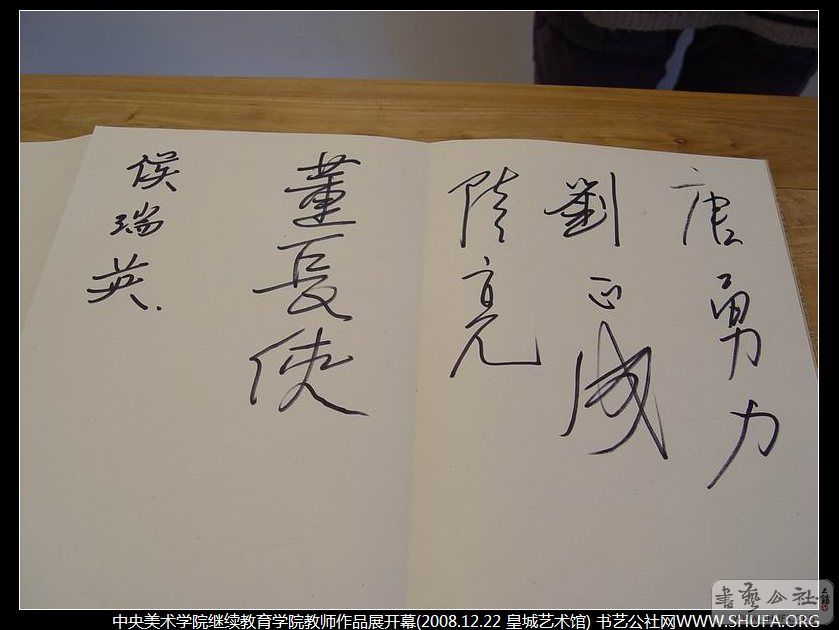 唐勇力
劉正成
陸亮
董長使
侯瑞英.
书艺公社
中央美术学院继续教育学院教师作品展开幕(2008.12.22 皇城艺术馆) 书艺公社网WWW.SHUFA.ORG